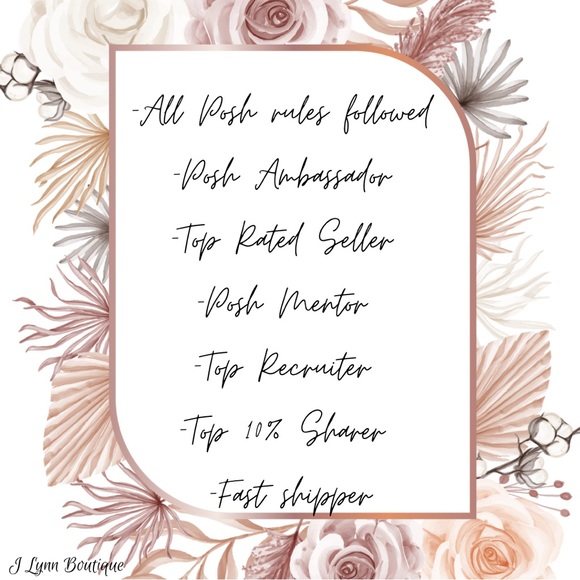 -All Posh rules followed
-Posh Ambassador
-Top Rated Seller
-Posh Mentor
-Top Recruiter
-Top 10% Sharer
-Fast shipper
J Lynn Boutique